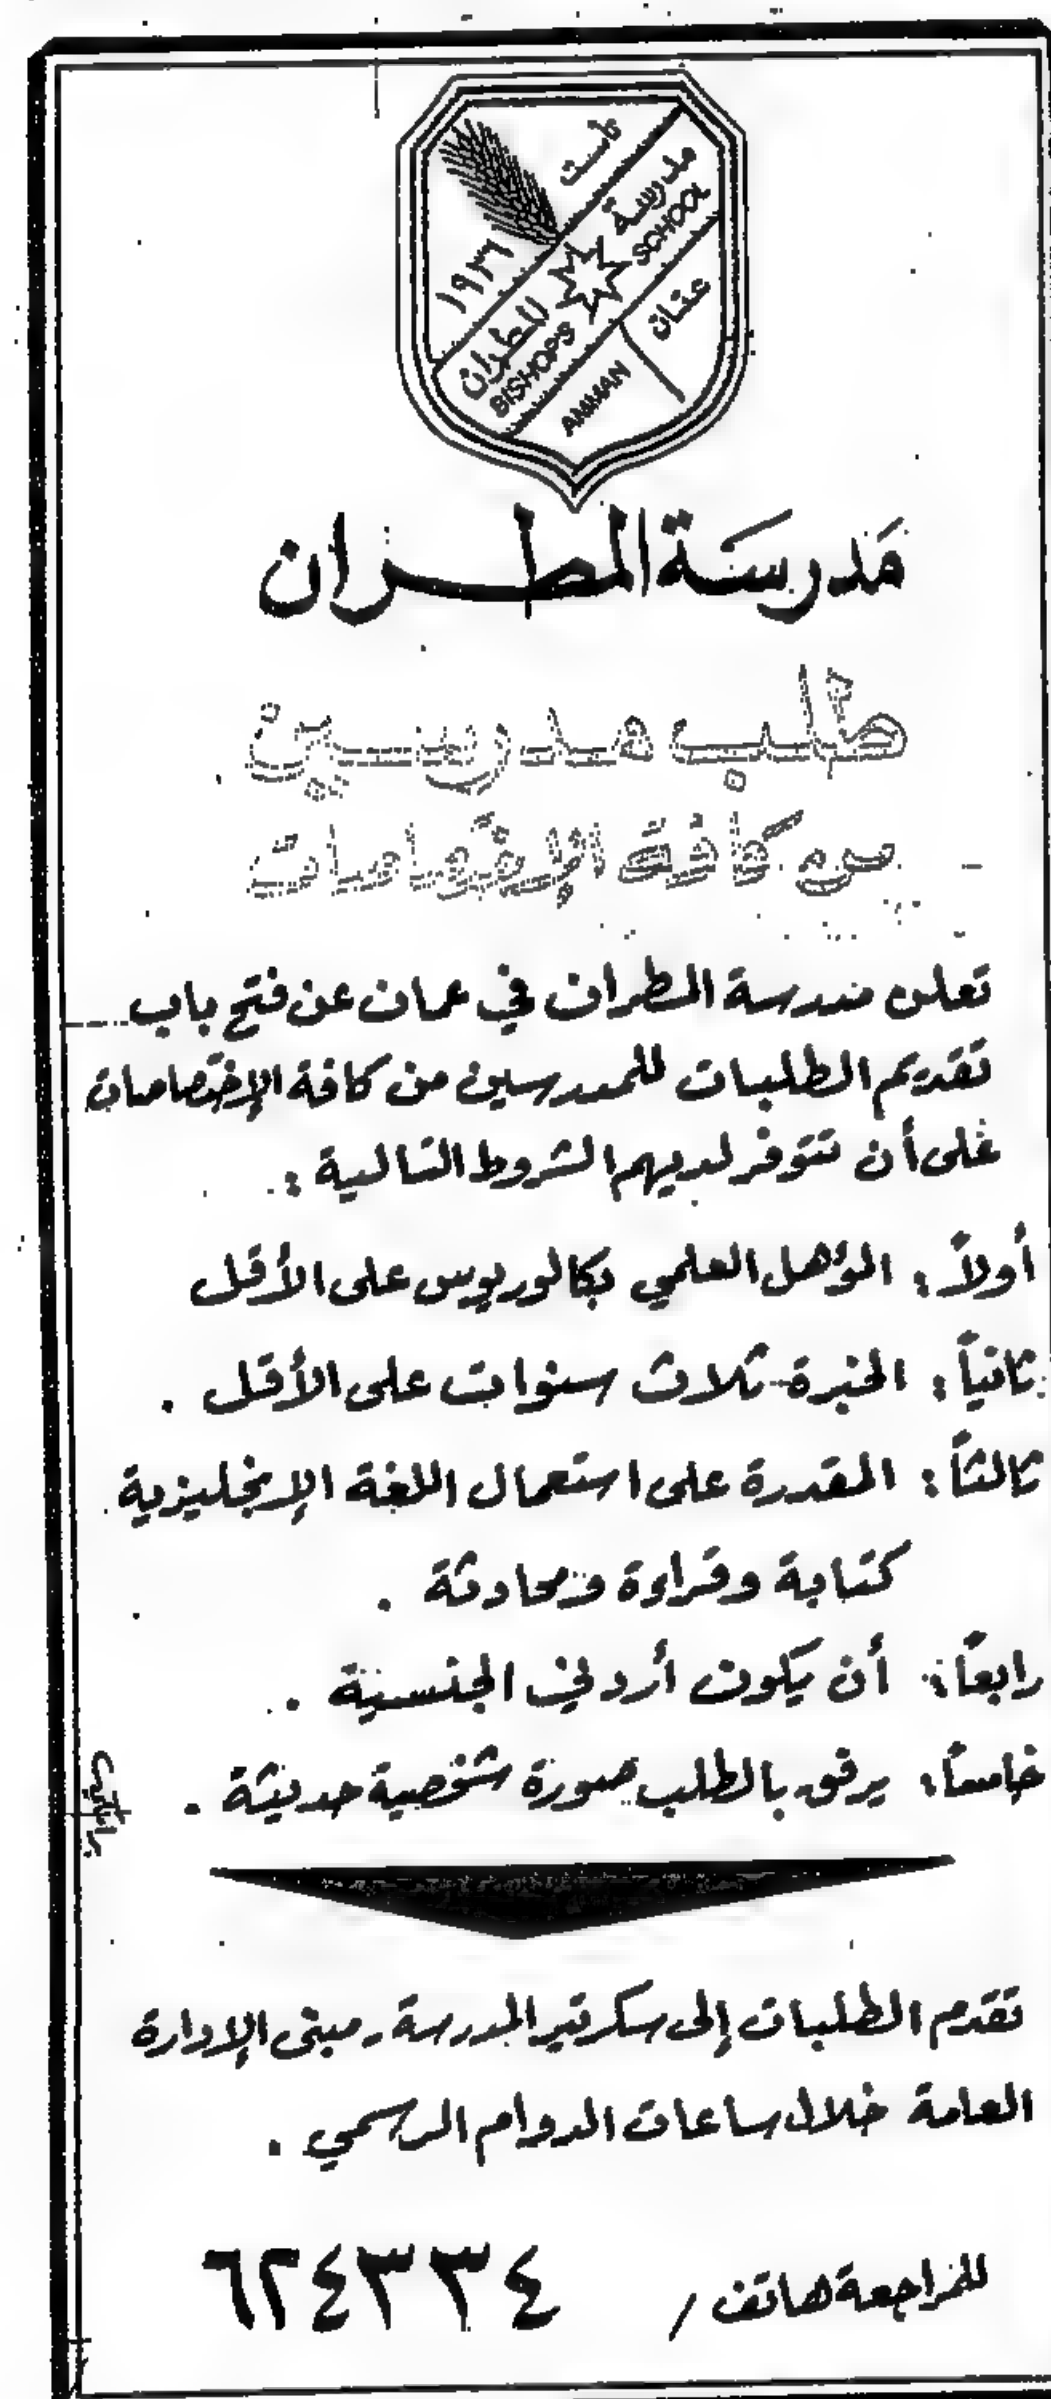 تأسست
١٩٣٦
مدرسة المطران
BISHOPS SCHOOL
عمان
AMMAN
مَدرسَة المطران
طلب مدرسين
من كافة الإختصاصات
تعلن مدرسة المطران في عمان عن فتح باب
تقديم الطلبات للمدرسين من كافة الإختصاصات
على أن تتوفر لديهم الشروط التالية :
أولاً : المؤهل العلمي بكالوريوس على الأقل
ثانياً : الخبرة - ثلاث سنوات على الأقل .
ثالثاً : المقدرة على استعمال اللغة الإنجليزية
كتابة وقراءة ومحادثة .
رابعاً : أن يكون أردني الجنسية .
خامساً : يرفق بالطلب صورة شخصية حديثة .
تقدم الطلبات إلى سكرتير المدرسة - مبنى الإدارة
العامة خلال ساعات الدوام الرسمي .
للمراجعة هاتف / ٦٢٤٣٣٤